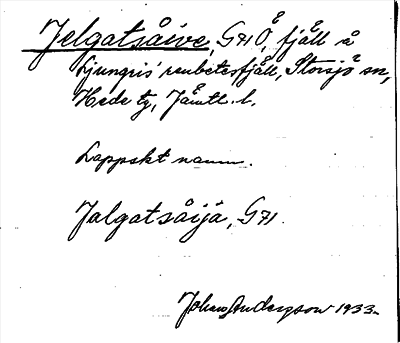 Jelgatsåive, G71 Ö, fjäll å
Ljungris' renbetesfjäll, Storsjö sn,
Hede tg, Jämtl. l.
Lappskt namn.
Jalgatsåijá, G71.
Johans Andersson 1933.